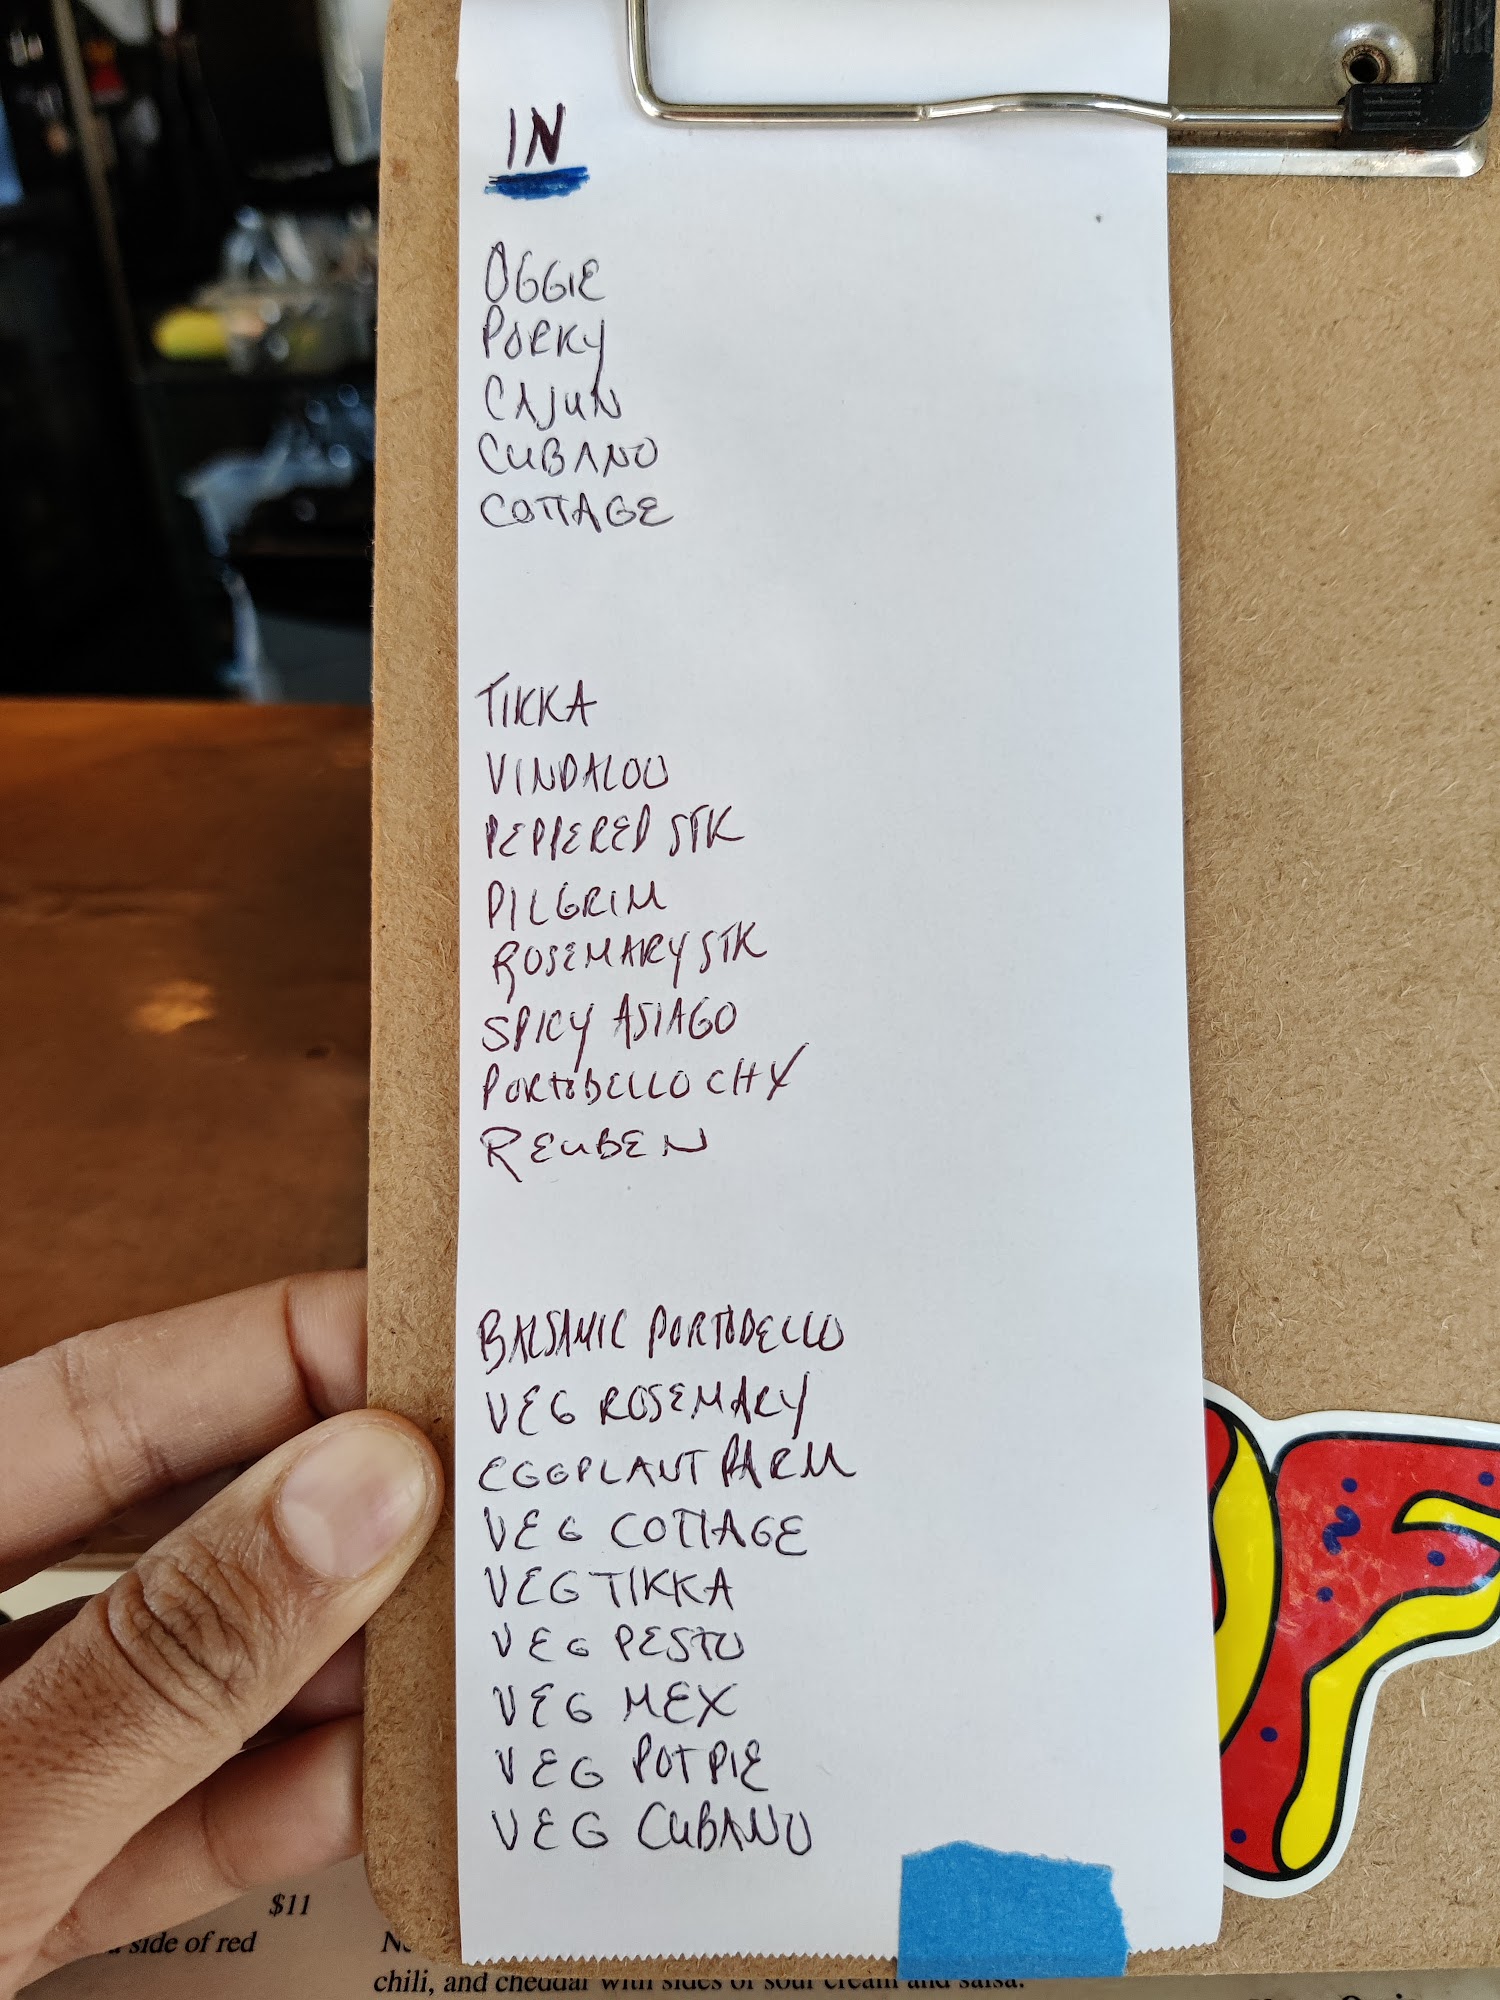 IN
OGGIE
PORKY
CAJUN
CUBANO
COTTAGE
TIKKA
VINDALOO
PEPPERED STK
PILGRIM
ROSEMARY STK
SPICY ASIAGO
PORTOBELLO CHX
REUBEN
BALSAMIC PORTOBELLO
VEG ROSEMARY
EGGPLANT PARM
VEG COTTAGE
VEG TIKKA
VEG PESTO
VEG MEX
VEG POT PIE
VEG CUBANO
$11
side of red
chili, and cheddar with sides of sour cream and salsa.